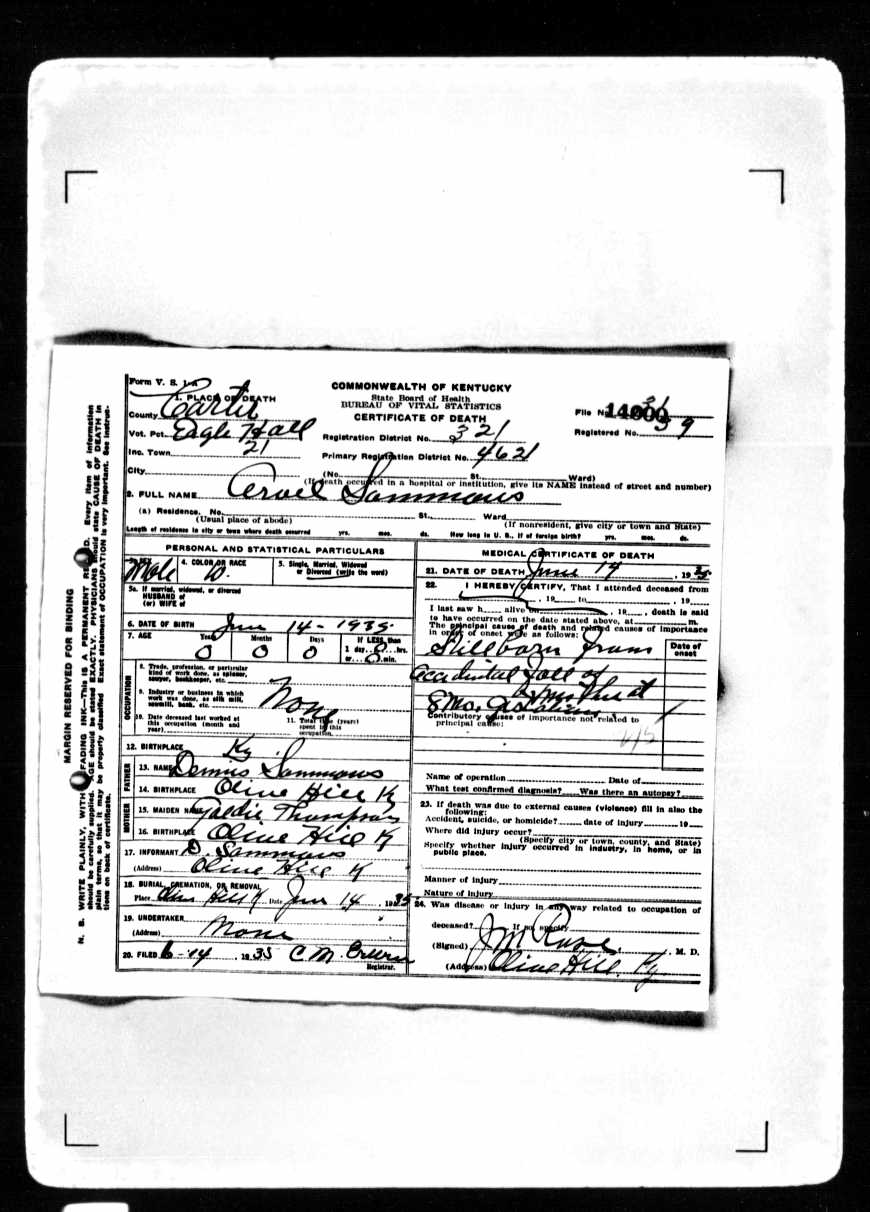 Form V. S. 1-A
COMMONWEALTH OF KENTUCKY
State Board of Health
BUREAU OF VITAL STATISTICS
CERTIFICATE OF DEATH
1. PLACE OF DEATH
County Carter
Vot. Pct. Eagle Hall
Inc. Town 21
City
Registration District No. 321
Primary Registration District No. 4621
File No. 14000
Registered No. 39
(No. St. Ward)
(If death occurred in a hospital or institution, give its NAME instead of street and number)
2. FULL NAME Arvel Sammons
(a) Residence. No. St., Ward
(Usual place of abode) (If nonresident, give city or town and State)
Length of residence in city or town where death occurred yrs. mos. ds. How long in U. S., if of foreign birth? yrs. mos. ds.
PERSONAL AND STATISTICAL PARTICULARS
Male
4. COLOR OR RACE W.
5. Single, Married, Widowed
or Divorced (write the word)
5a. If married, widowed, or divorced
HUSBAND of
(or) WIFE of
6. DATE OF BIRTH June 14 - 1935
7. AGE Years Months Days If LESS than
0 0 0 1 day 0 hrs.
or 0 min.
OCCUPATION
8. Trade, profession, or particular
kind of work done, as spinner,
sawyer, bookkeeper, etc.
9. Industry or business in which
work was done, as silk mill,
sawmill, bank, etc. None
10. Date deceased last worked at
this occupation (month and
year)
11. Total time (years)
spent in this
occupation
12. BIRTHPLACE Ky
FATHER
13. NAME Dennis Sammons
14. BIRTHPLACE Olive Hill K
MOTHER
15. MAIDEN NAME Goldie Thompson
16. BIRTHPLACE Olive Hill K
17. INFORMANT D. Sammons
(Address) Olive Hill K
18. BURIAL, CREMATION, OR REMOVAL
Place Olive Hill K Date June 14, 1935
19. UNDERTAKER
(Address) None
20. FILED 6-14, 1935 C M
Registrar.
MEDICAL CERTIFICATE OF DEATH
21. DATE OF DEATH June 14, 1935
22. I HEREBY CERTIFY, That I attended deceased from
, 19 to , 19
I last saw h alive on , 19 , death is said
to have occurred on the date stated above, at m.
The principal cause of death and related causes of importance
in order of onset were as follows:
Date of
onset
Stillborn from
accidental fall of
8 Mo.
Contributory causes of importance not related to
principal cause:
Name of operation Date of
What test confirmed diagnosis? Was there an autopsy?
23. If death was due to external causes (violence) fill in also the
following:
Accident, suicide, or homicide? date of injury 19
Where did injury occur?
(Specify city or town, county, and State)
Specify whether injury occurred in industry, in home, or in
public place.
Manner of injury
Nature of injury
24. Was disease or injury in any way related to occupation of
deceased? If so, specify
(Signed) J M Rose, M. D.
(Address) Olive Hill, Ky.
MARGIN RESERVED FOR BINDING
N. B. WRITE PLAINLY, WITH FADING INK—This is A PERMANENT Every item of information
should be carefully supplied. AGE should be stated EXACTLY. PHYSICIANS should state CAUSE OF DEATH in
plain terms, so that it may be properly classified. Exact statement of OCCUPATION is very important. See instruc-
tions on back of certificate.